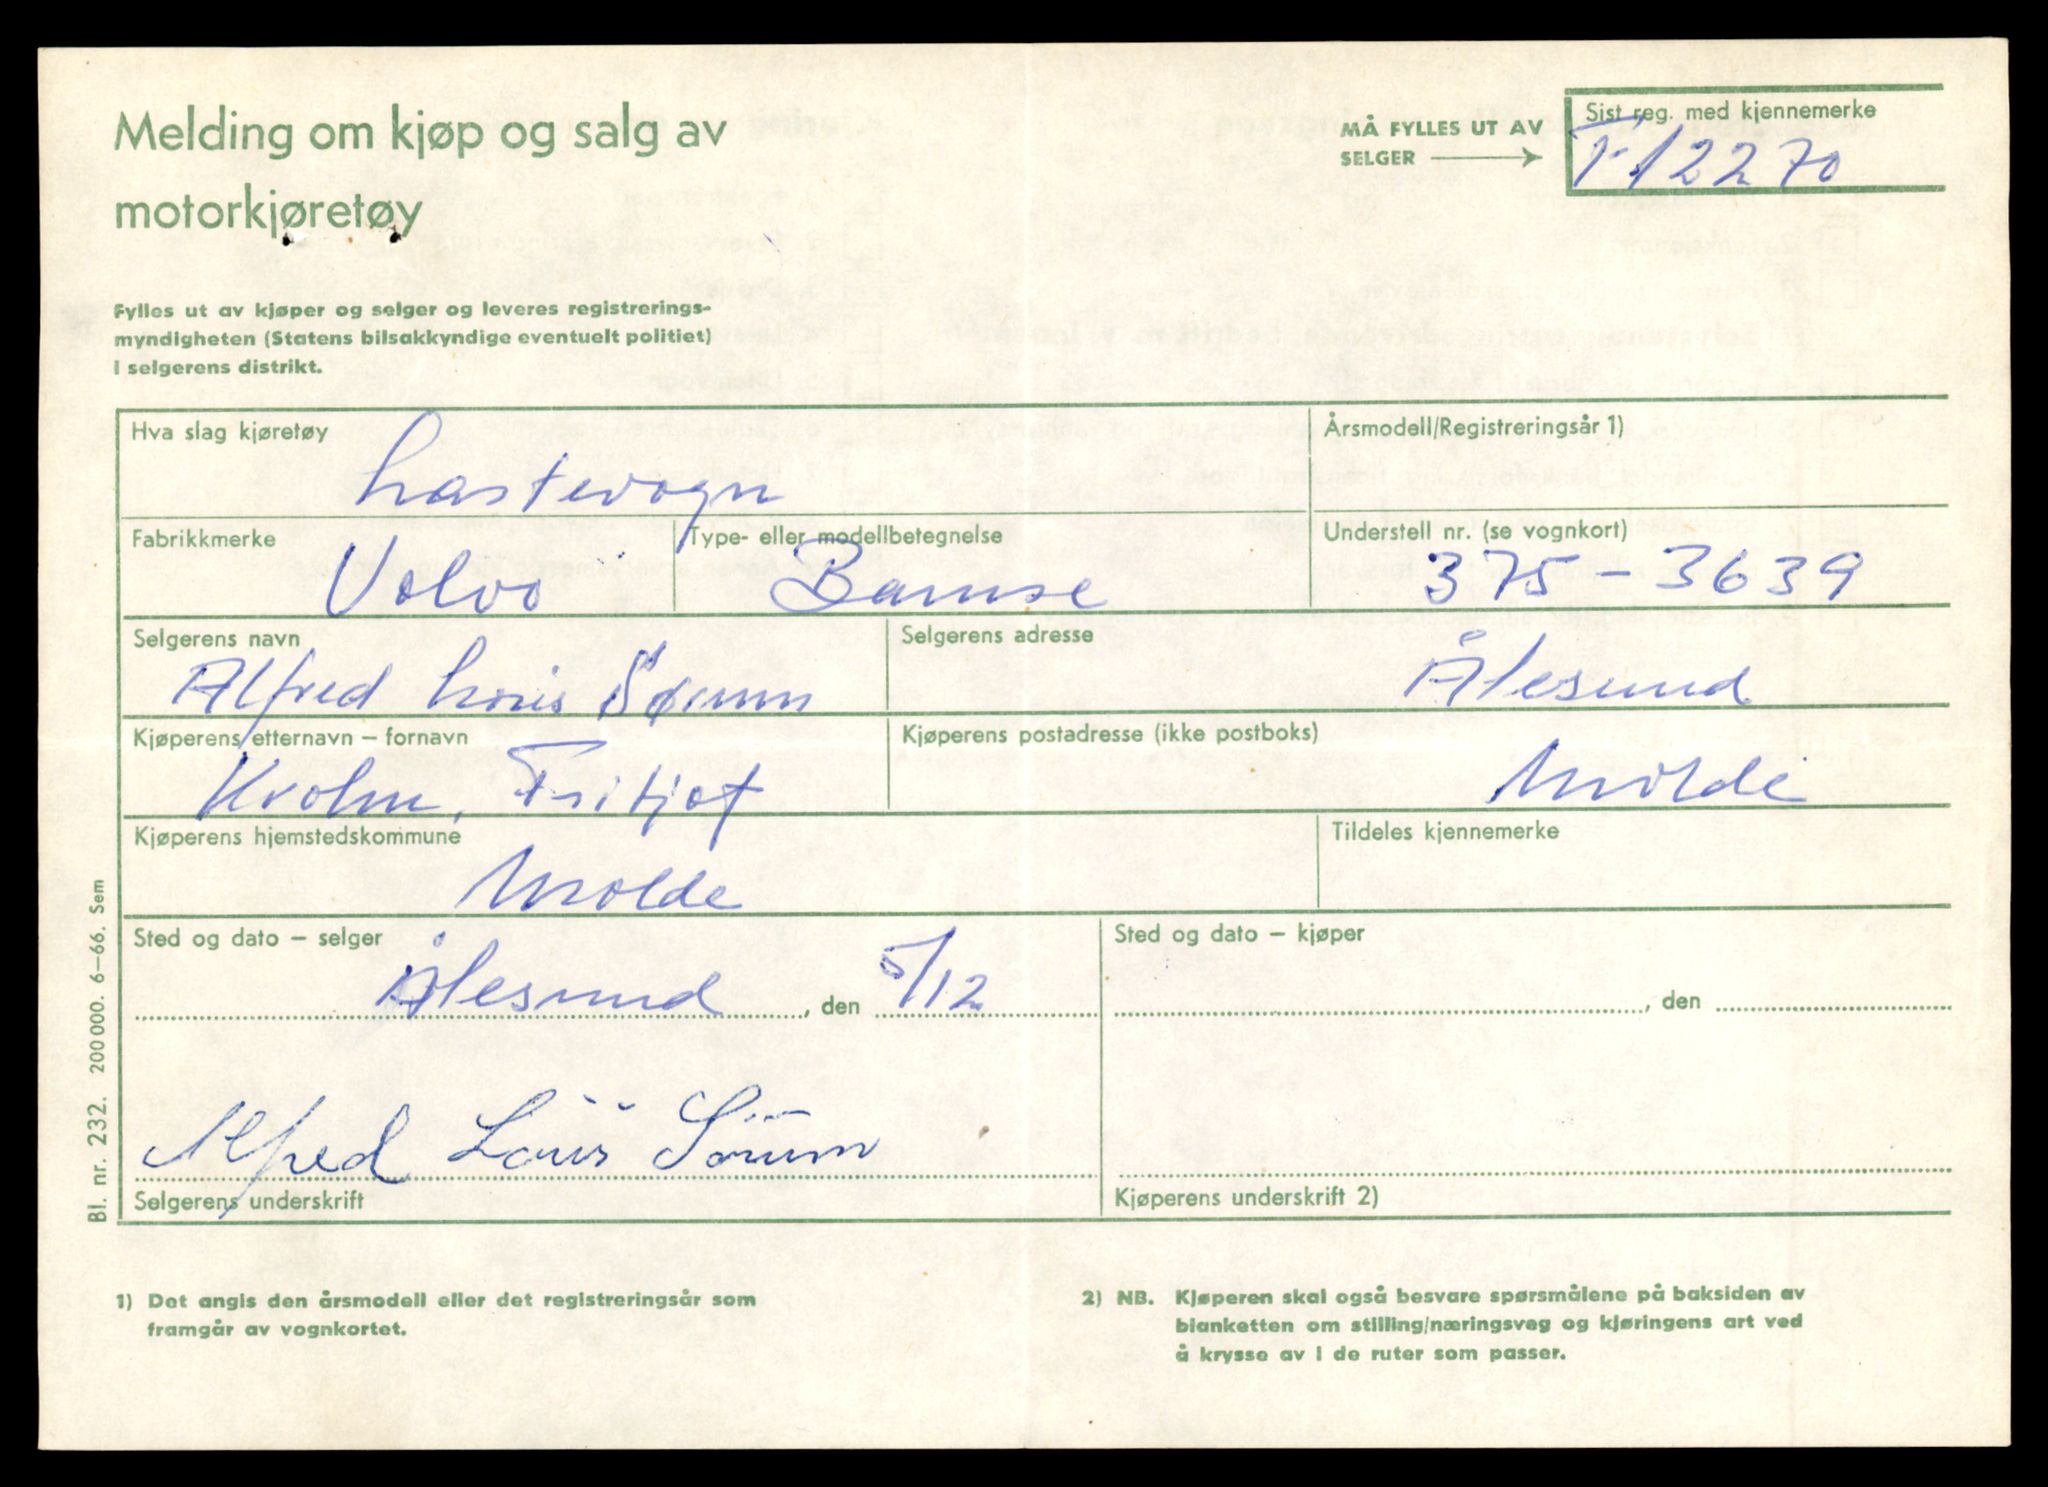 Melding om kjøp og salg av
motorkjøretøy
MÅ FYLLES UT AV
SELGER
Sist reg. med kjennemerke
T-12270
Fylles ut av kjøper og selger og leveres registrerings-
myndigheten (Statens bilsakkyndige eventuelt politiet)
i selgerens distrikt.
Hva slag kjøretøy
Lastevogn
Årsmodell/Registreringsår 1)
Fabrikkmerke
Volvo
Type- eller modellbetegnelse
Bamse
Understell nr. (se vognkort)
375-3639
Selgerens navn
Alfred Louis Sørum
Selgerens adresse
Ålesund
Kjøperens etternavn – fornavn
Kvolm, Fritjof
Kjøperens postadresse (ikke postboks)
Molde
Kjøperens hjemstedskommune
Molde
Tildeles kjennemerke
Sted og dato – selger
Ålesund, den 5/12
Sted og dato – kjøper
, den
Alfred Louis Sørum
Selgerens underskrift
Kjøperens underskrift 2)
Bl. nr. 232. 200 000. 6–66. Sem
1) Det angis den årsmodell eller det registreringsår som
framgår av vognkortet.
2) NB. Kjøperen skal også besvare spørsmålene på baksiden av
blanketten om stilling/næringsveg og kjøringens art ved
å krysse av i de ruter som passer.